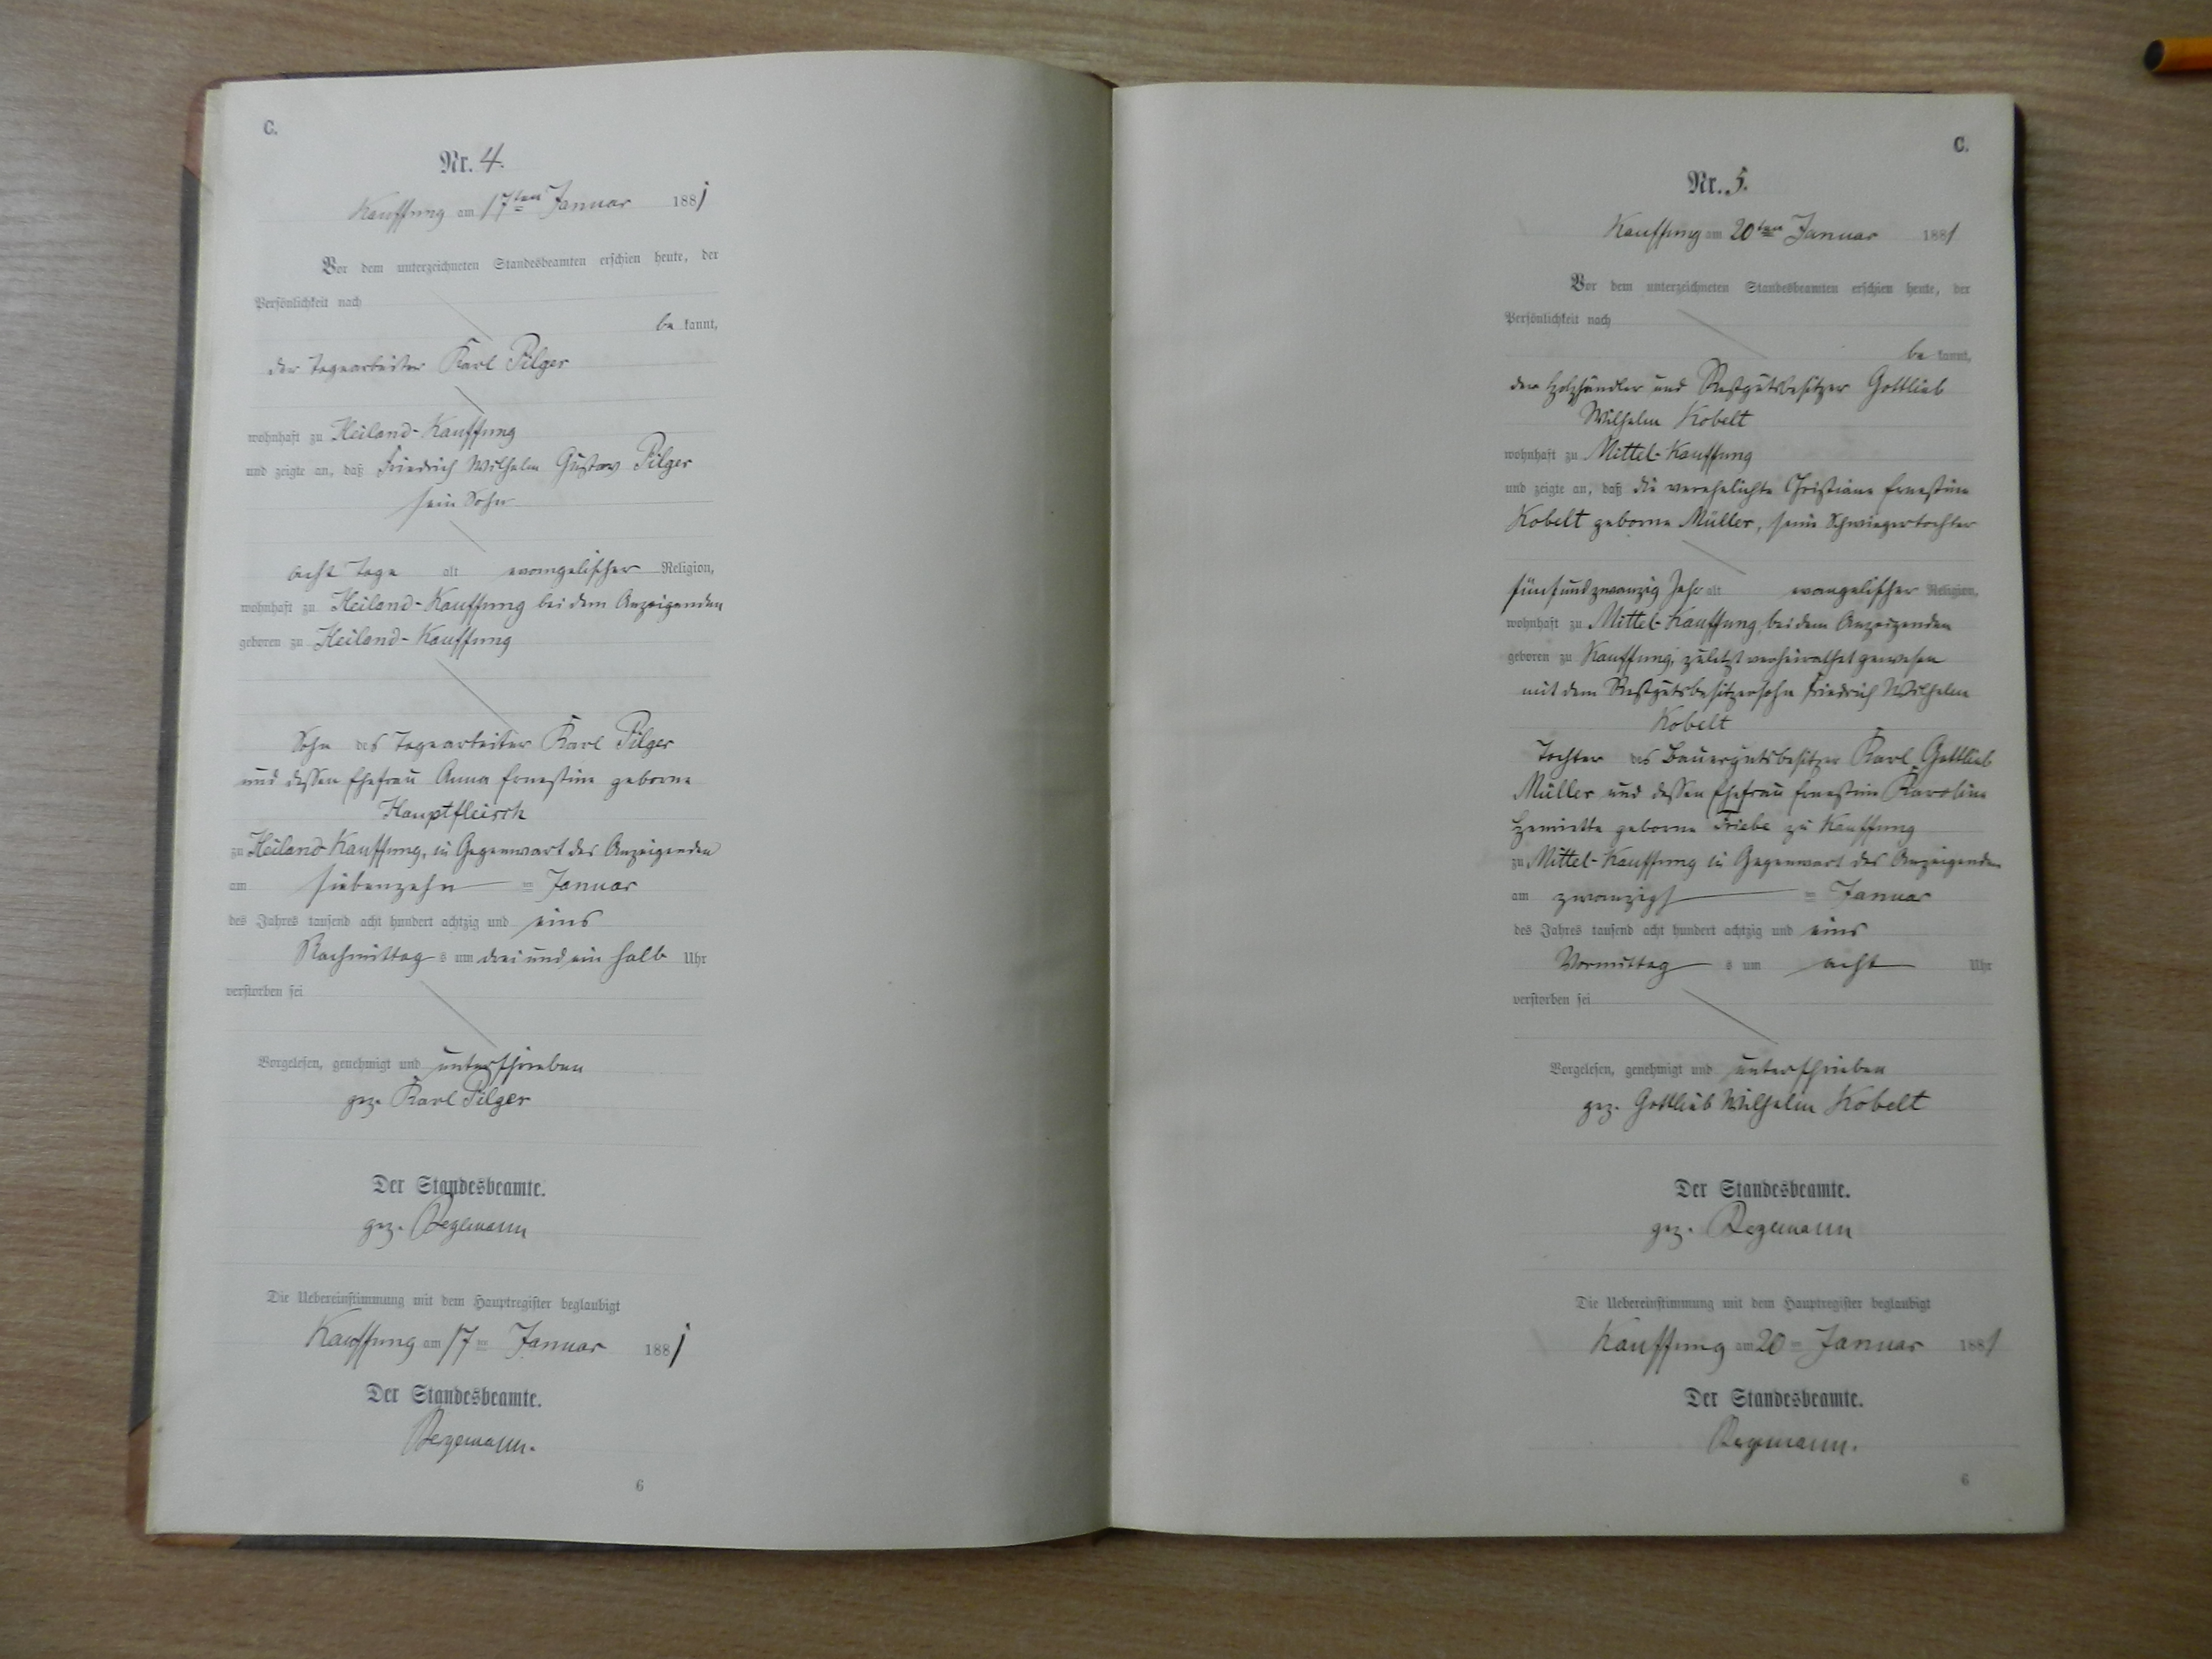 C.
Nr. 4.
Kauffung am 17ten Januar 1881
Vor dem unterzeichneten Standesbeamten erschien heute, der
Persönlichkeit nach
be kannt,
der Tagearbeiter Karl Pilger
wohnhaft zu Heiland-Kauffung
und zeigte an, daß Friedrich Wilhelm Gustav Pilger
sein Sohn
acht Tage alt evangelischer Religion,
wohnhaft zu Heiland-Kauffung bei dem Anzeigenden
geboren zu Heiland-Kauffung
Sohn des Tagearbeiter Karl Pilger
und dessen Ehefrau Anna Ernestine geborne
Hauptfleisch
zu Heiland Kauffung, in Gegenwart des Anzeigenden
am siebenzehn ten Januar
des Jahres tausend acht hundert achtzig und eins
Nachmittag s um drei und ein halb Uhr
verstorben sei
Vorgelesen, genehmigt und unterschrieben
gez. Karl Pilger
Der Standesbeamte.
gez.
Die Uebereinstimmung mit dem Hauptregister beglaubigt
Kauffung am 17ten Januar 1881
Der Standesbeamte.
6
C.
Nr. 5.
Kauffung am 20ten Januar 1881
Vor dem unterzeichneten Standesbeamten erschien heute, der
Persönlichkeit nach
be kannt,
der Holzhändler und Restgutsbesitzer Gottlieb
Wilhelm Kobelt
wohnhaft zu Mittel-Kauffung
und zeigte an, daß die verehelichte Christiane Ernestine
Kobelt geborne Müller, seine Schwiegertochter
fünfundzwanzig Jahr alt evangelischer Religion,
wohnhaft zu Mittel-Kauffung, bei dem Anzeigenden
geboren zu Kauffung, zuletzt verheirathet gewesen
mit dem Restgutsbesitzersohn Friedrich Wilhelm
Kobelt
Tochter des Bauergutsbesitzer Karl Gottlieb
Müller und dessen Ehefrau Ernestine Karoline
Henriette geborne Friebe zu Kauffung
zu Mittel-Kauffung in Gegenwart des Anzeigenden
am zwanzigst ten Januar
des Jahres tausend acht hundert achtzig und eins
Vormittag s um acht Uhr
verstorben sei
Vorgelesen, genehmigt und unterschrieben
gez. Gottlieb Wilhelm Kobelt
Der Standesbeamte.
gez.
Die Uebereinstimmung mit dem Hauptregister beglaubigt
Kauffung am 20ten Januar 1881
Der Standesbeamte.
6